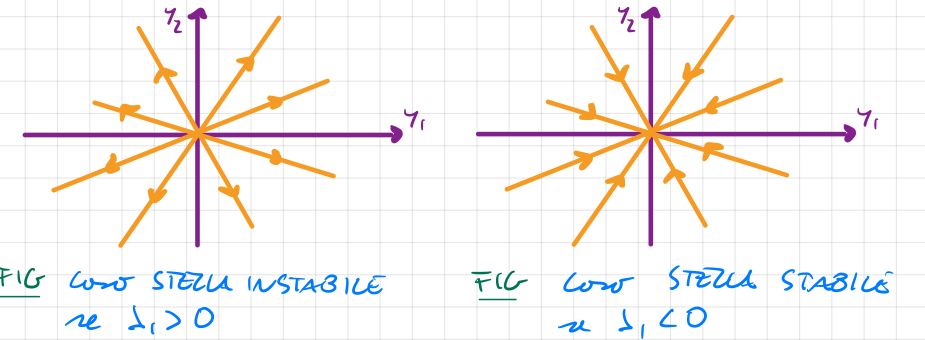 y₂
y₁
y₂
y₁
FIG caso STELLA INSTABILE
se λ₁ > 0
FIG caso STELLA STABILE
se λ₁ < 0